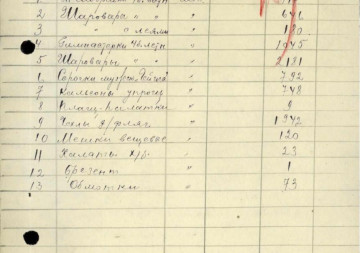 2 Шаровары " " " 641
3 " " 180
4 Гимнастерки " 1945
5 Шаровары " " " 2181
6 Сорочки " 792
7 Кальсоны " 748
8 Плащ-палатки " 9
9 Чехлы д/фляг " 1942
10 Мешки вещевое " 120
11 Халаты х/б. " 23
12 Брезент " 1
13 Обмотки " 73